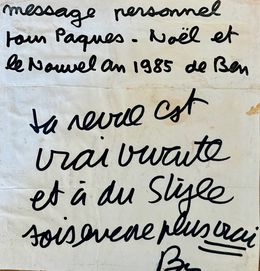 message personnel
pour Paques - Noël et
le Nouvel an 1985 de Ben
ta revue est
vrai vivante
et à du Style
sois encore plus vrai
Ben